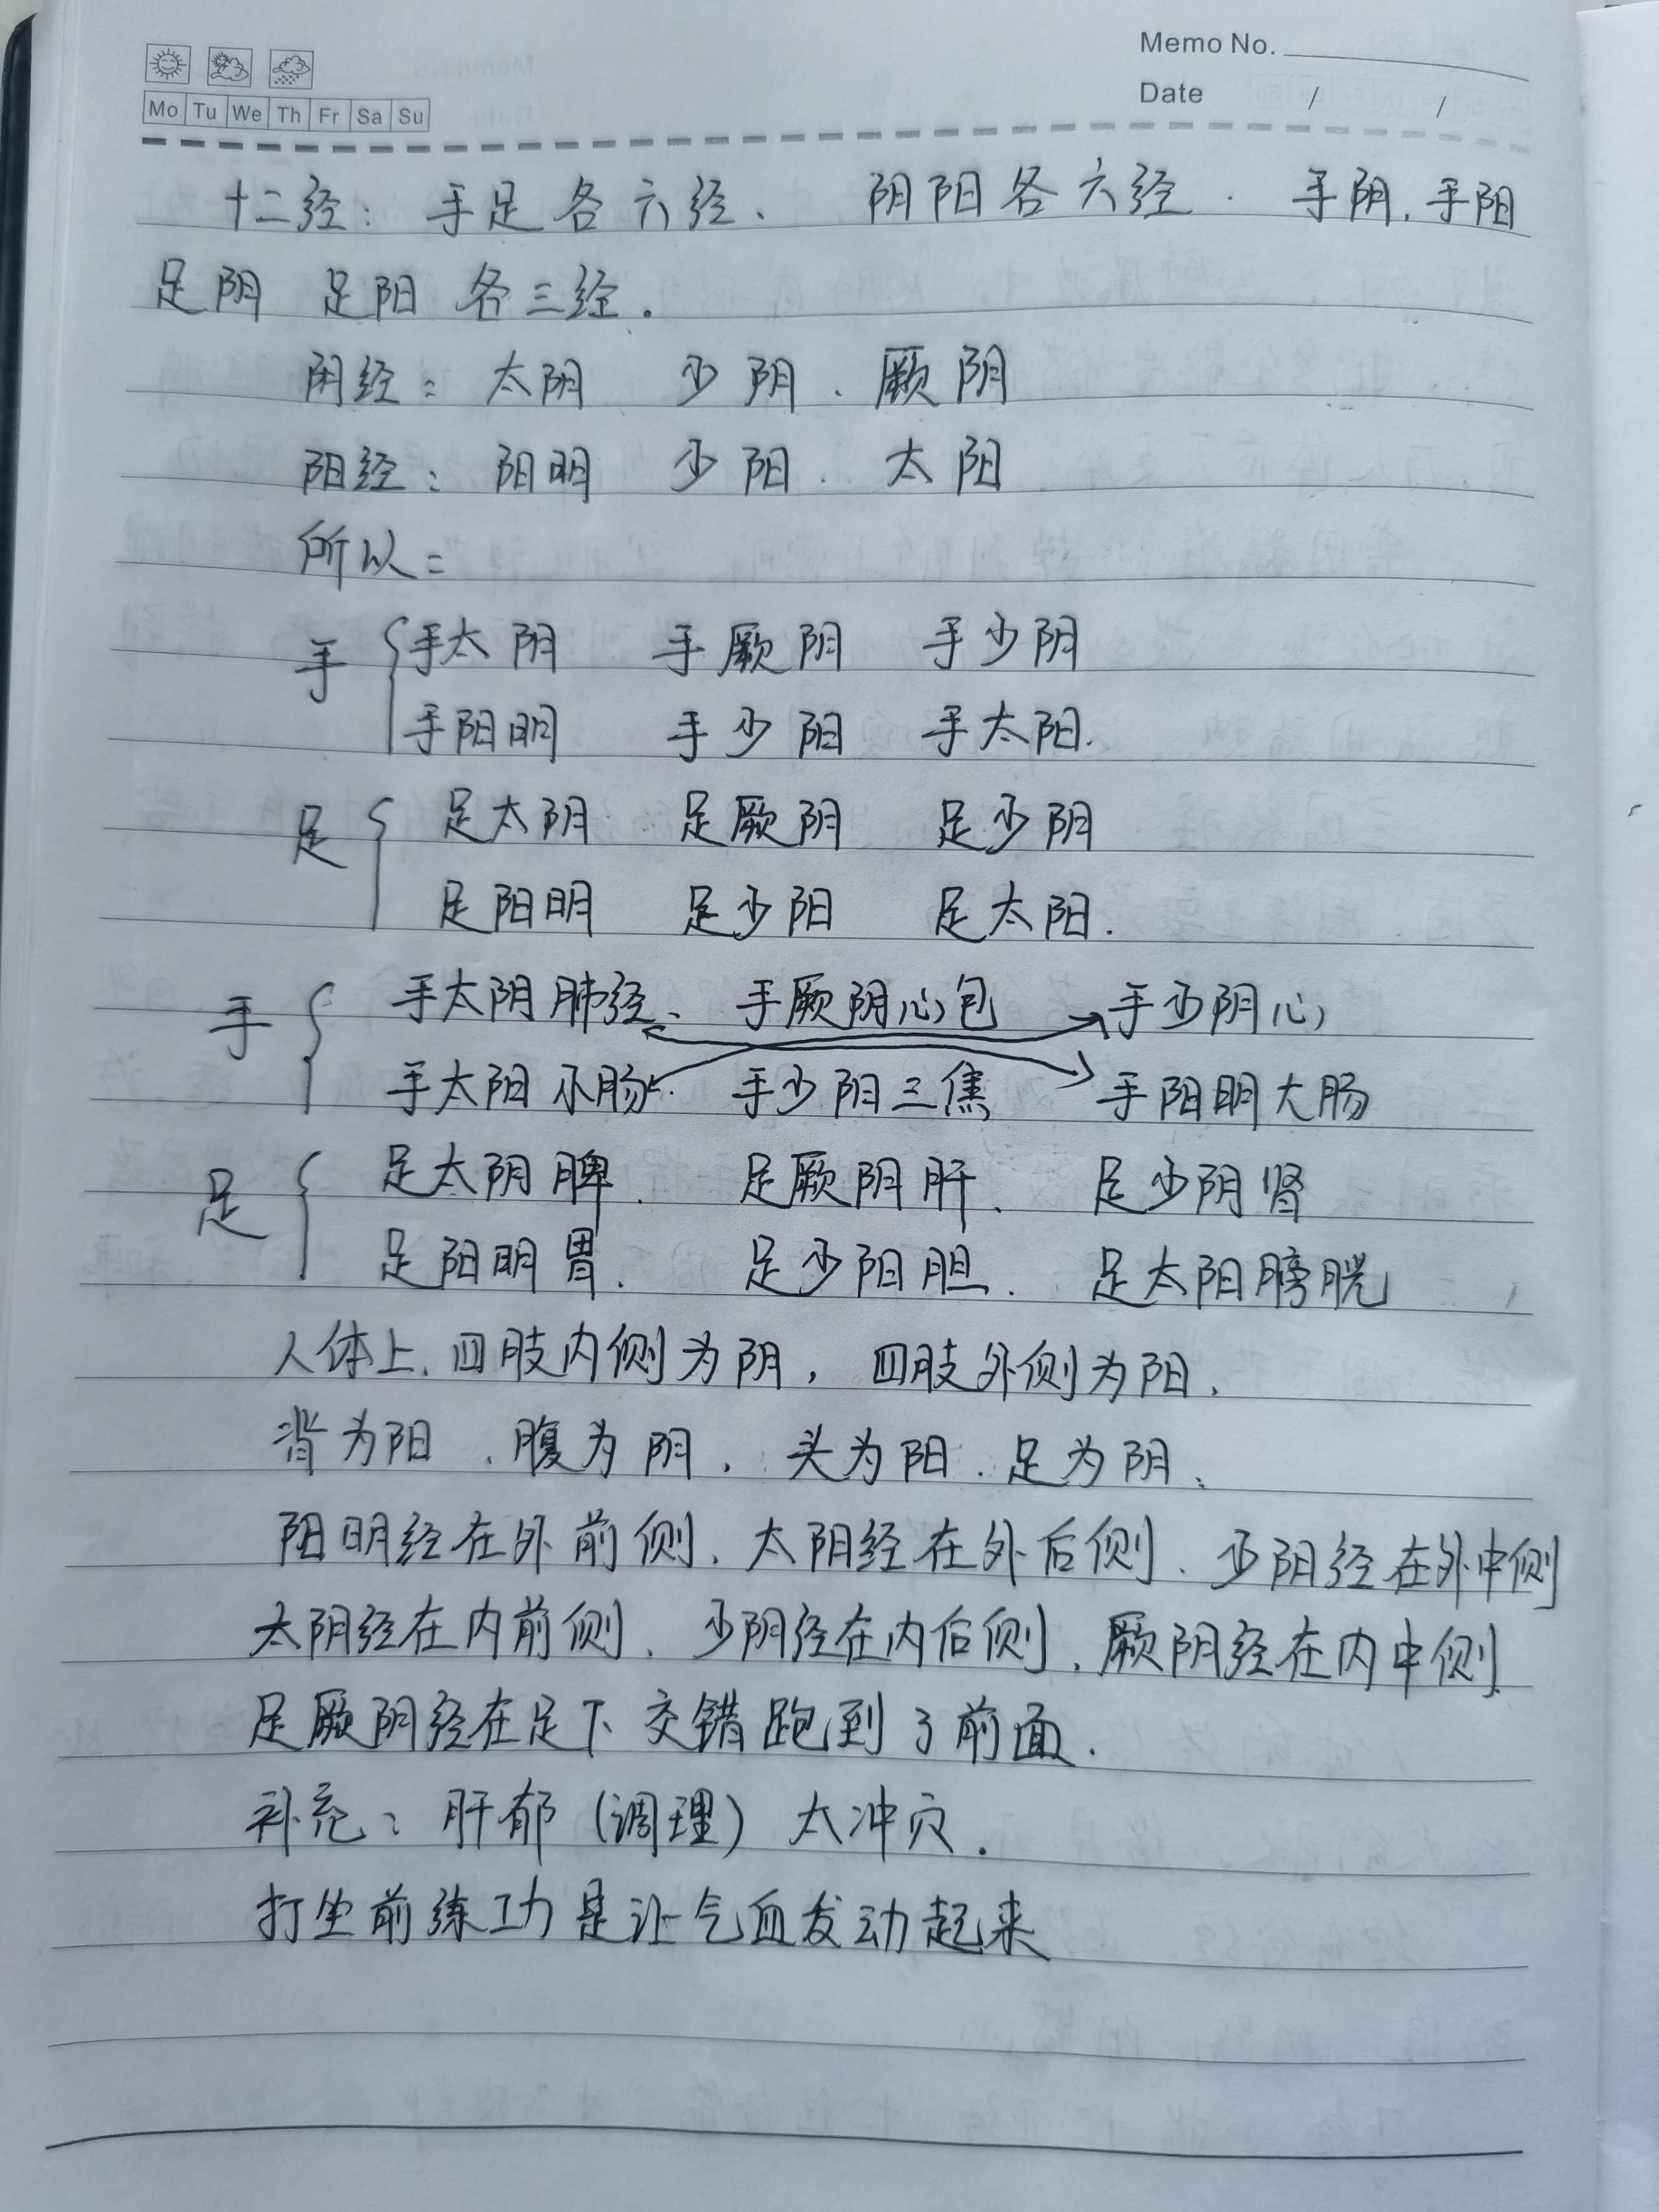 Memo No.
Mo Tu We Th Fr Sa Su
Date / /
十二经：手足各六经、 阴阳各六经. 手阴，手阳
足阴 足阳 各三经。
阴经：太阴 少阴、厥阴
阳经：阳明 少阳. 太阳
所以：
手 手太阴 手厥阴 手少阴
手阳明 手少阳 手太阳.
足 足太阴 足厥阴 足少阴
足阳明 足少阳 足太阳.
手 手太阴肺经、 手厥阴心包 手少阴心
手太阳小肠. 手少阳三焦 手阳明大肠
足 足太阴脾. 足厥阴肝、 足少阴肾
足阳明胃. 足少阳胆. 足太阳膀胱
人体上、四肢内侧为阴，四肢外侧为阳，
背为阳、腹为阴，头为阳、足为阴、
阳明经在外前侧、太阳经在外后侧、少阳经在外中侧
太阴经在内前侧、少阴经在内后侧，厥阴经在内中侧.
足厥阴经在足下交错跑到了前面.
补充：肝郁（调理）太冲穴.
打坐前练功是让气血发动起来